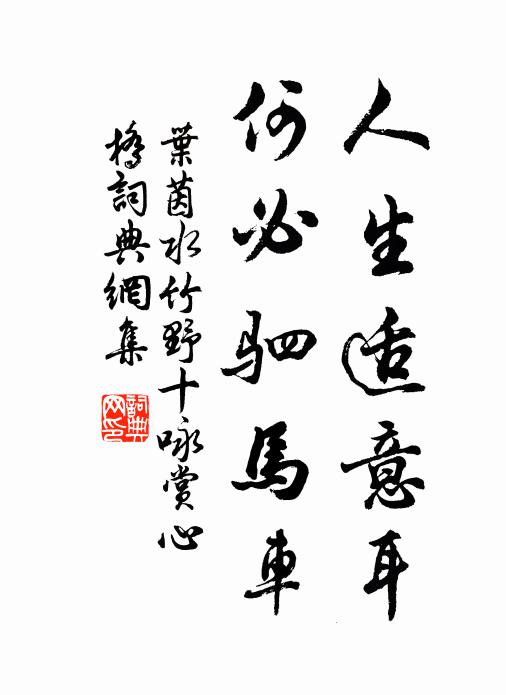 人生适意耳
何必驷馬車
葉茵水竹野十咏赏心
橋詞典網集
詞典网印